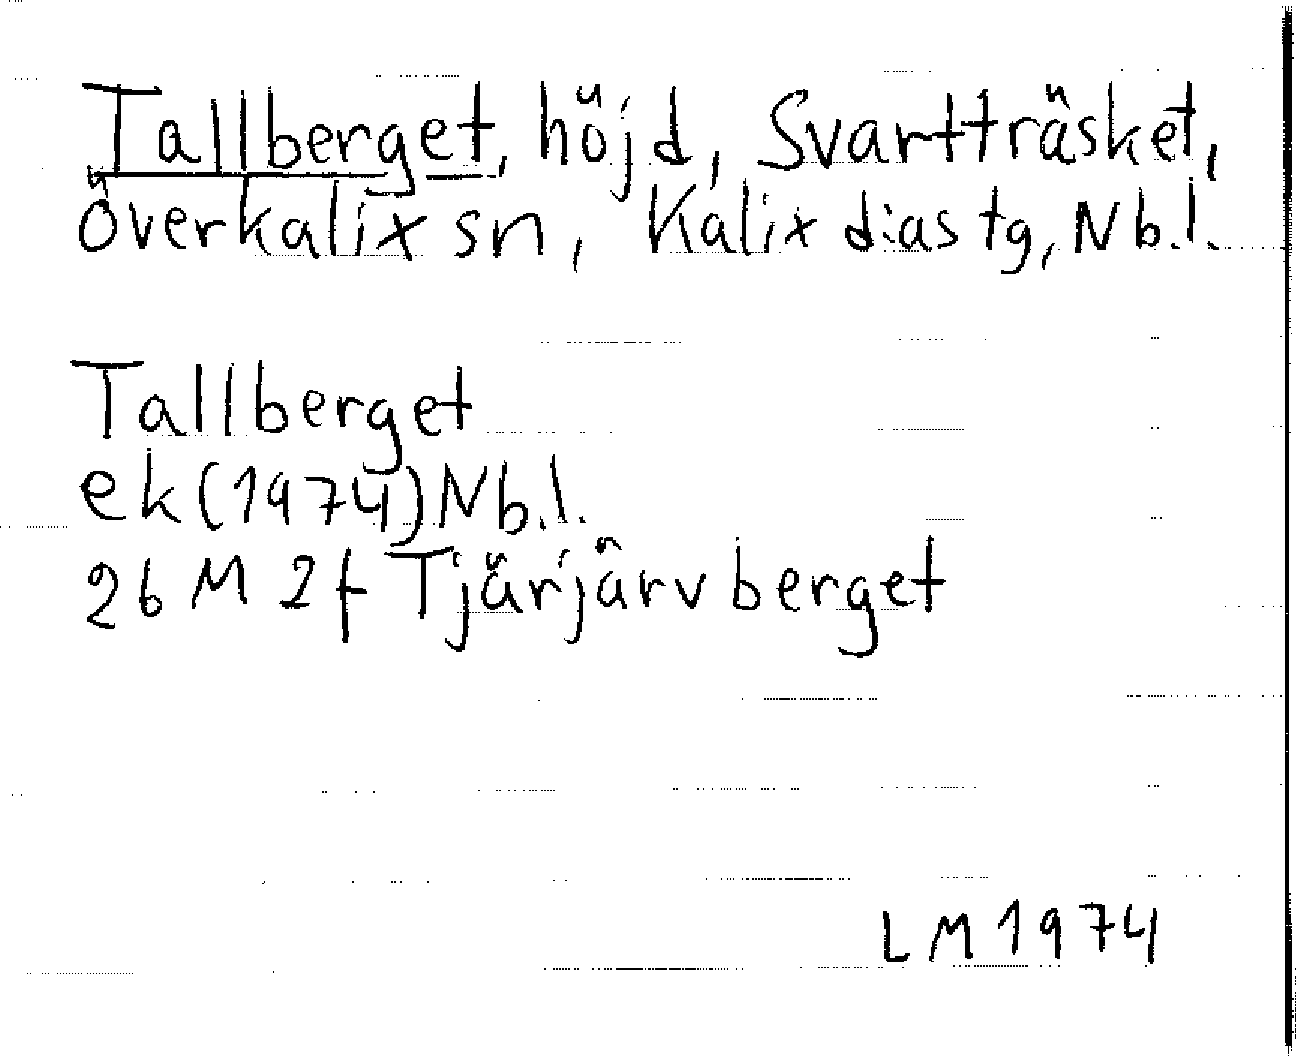 Tallberget, höjd, Svartträsket,
Överkalix sn, Kalix d:as tg, Nb.l.
Tallberget
ek (1974) Nb.l.
26 M 2f Tjärjärvberget
LM 1974